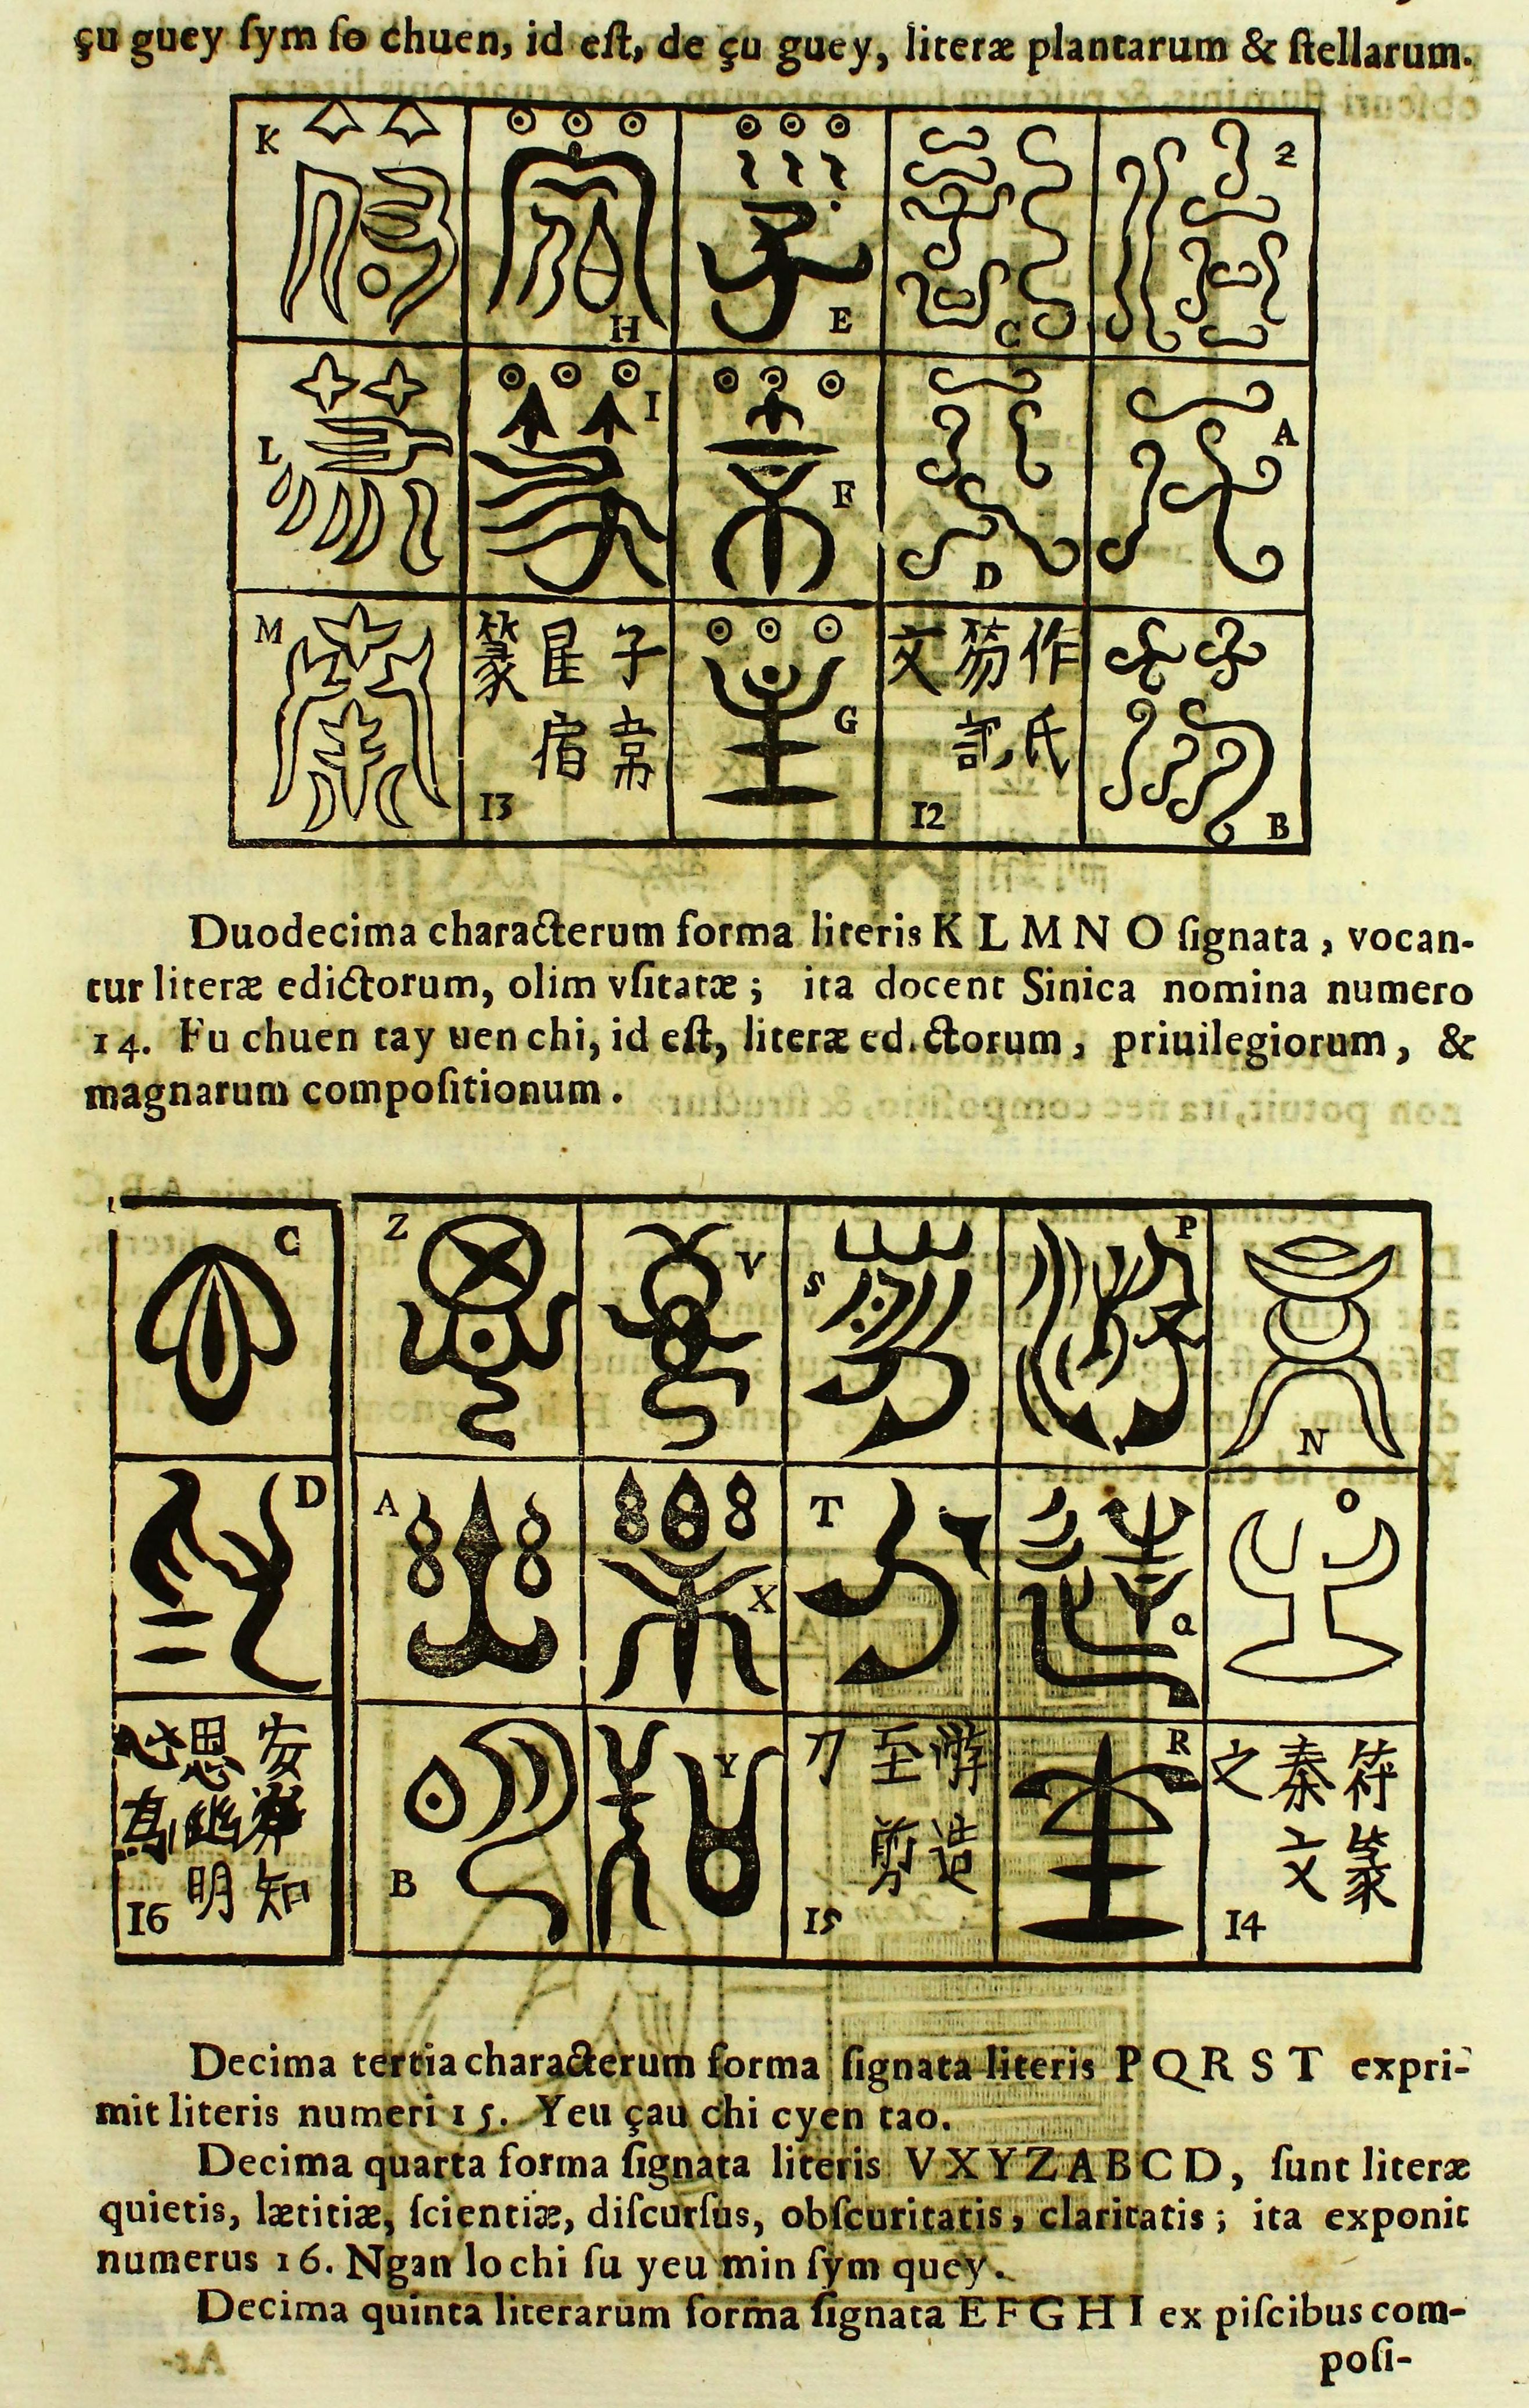 çu guey ſym ſo chuen, id eſt, de çu guey, literæ plantarum & ſtellarum.
K
H
E
C
2
L
I
F
D
A
M
子
星宿
篆
13
G
作氏
記
文
12
B
Duodecima characterum forma literis K L M N O ſignata, vocan-
tur literæ edictorum, olim vſitatæ; ita docent Sinica nomina numero
14. Fu chuen tay uen chi, id eſt, literæ ed.ctorum, priuilegiorum, &
magnarum compoſitionum.
C
Z
V
S
P
N
D
A
X
T
Q
O
安知
思幽明
心
16
B
Y
造
至剪
刀
15
R
符篆
秦文
之
14
Decima tertia characterum forma ſignata literis P Q R S T expri-
mit literis numeri 15. Yeu çau chi cyen tao.
Decima quarta forma ſignata literis V X Y Z A B C D, ſunt literæ
quietis, lætitiæ, ſcientiæ, diſcurſus, obſcuritatis, claritatis; ita exponit
numerus 16. Ngan lo chi ſu yeu min ſym quey.
Decima quinta literarum forma ſignata E F G H I ex piſcibus com-
poſi-